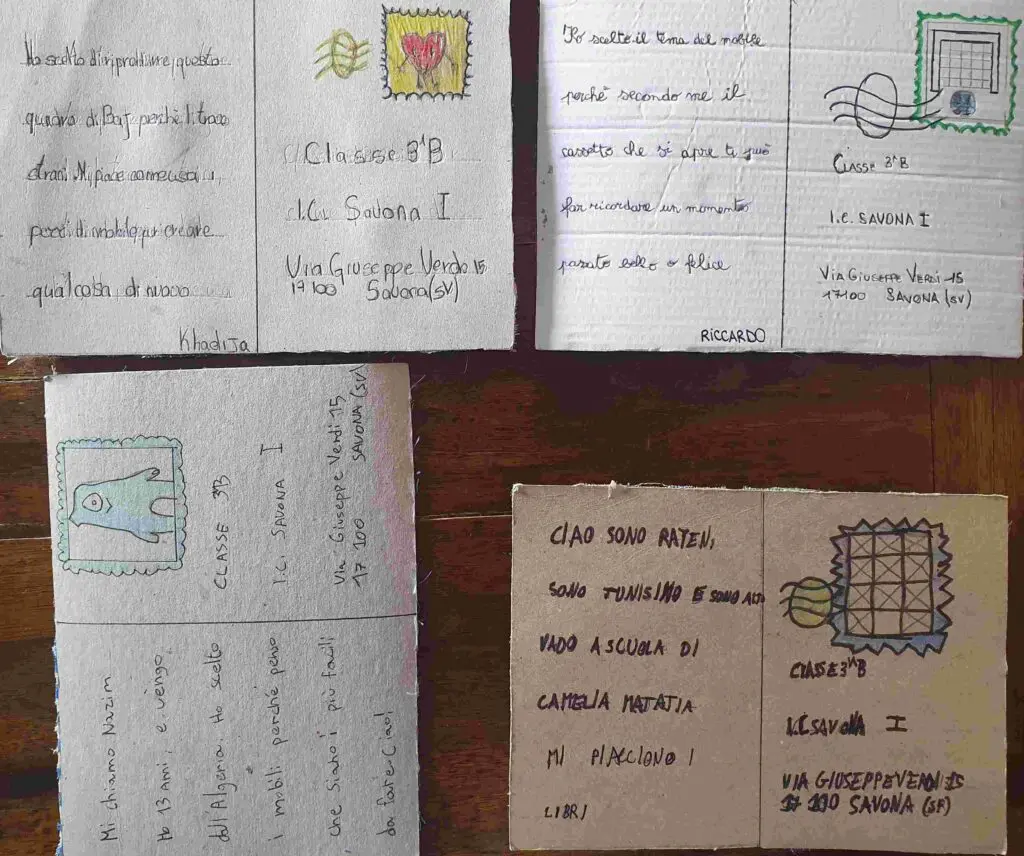 Ho scelto di riprodurre questo
quadro di Baj perché li trovo
strani. Mi piace come usa i
pezzi di mobile per creare
qualcosa di nuovo
Khadija
Classe 3^B
I.C. Savona I
Via Giuseppe Verdo 15
17100 Savona (SV)
Ho scelto il tema del mobile
perché secondo me il
cassetto che si apre ti può
far ricordare un momento
passato bello o felice
RICCARDO
Classe 3^B
I.C. SAVONA I
Via Giuseppe Verdi 15
17100 SAVONA (SV)
CLASSE 3B
I.C. SAVONA I
Via Giuseppe Verdi 15
17 100 SAVONA (SV)
Mi chiamo Nazim
Ho 13 anni, e vengo
dall'Algeria. Ho scelto
i mobili perché penso
che siano i più facili
da fare. Ciao!
CIAO SONO RATEN,
SONO TUNISINO E SONO ALTO
VADO A SCUOLA DI
CAMELIA MATATIA
MI PIACCIONO I
LIBRI
CLASSE 3^B
I.C SAVONA I
VIA GIUSEPPE VERDI 15
SAVONA (SV)